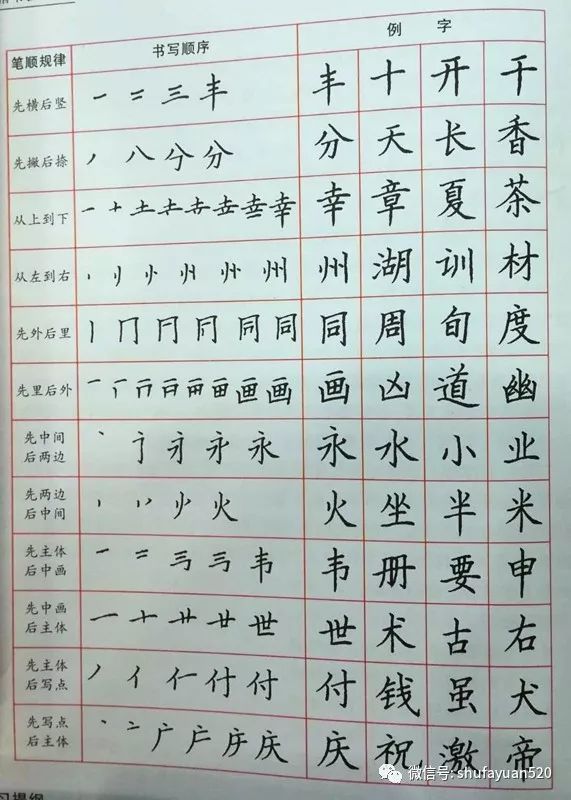 笔顺规律 书写顺序 例 字
先横后竖 一 二 三 丰 丰 十 开 干
先撇后捺 丿 八 分 分 分 天 长 香
从上到下 一 十 土 幸 幸 章 夏 茶
从左到右 州 州 湖 训 材
先外后里 丨 冂 同 同 同 周 旬 度
先里后外 一 画 画 画 凶 道 幽
先中间
后两边 丶 永 永 水 小 业
先两边
后中间 火 火 坐 半 米
先主体
后中画 一 二 韦 韦 册 要 申
先中画
后主体 一 十 廿 世 世 术 古 右
先主体
后写点 丿 亻 付 付 钱 虽 犬
先写点
后主体 丶 亠 广 庄 庆 庆 祝 激 帝
习提纲
微信号: shufayuan520